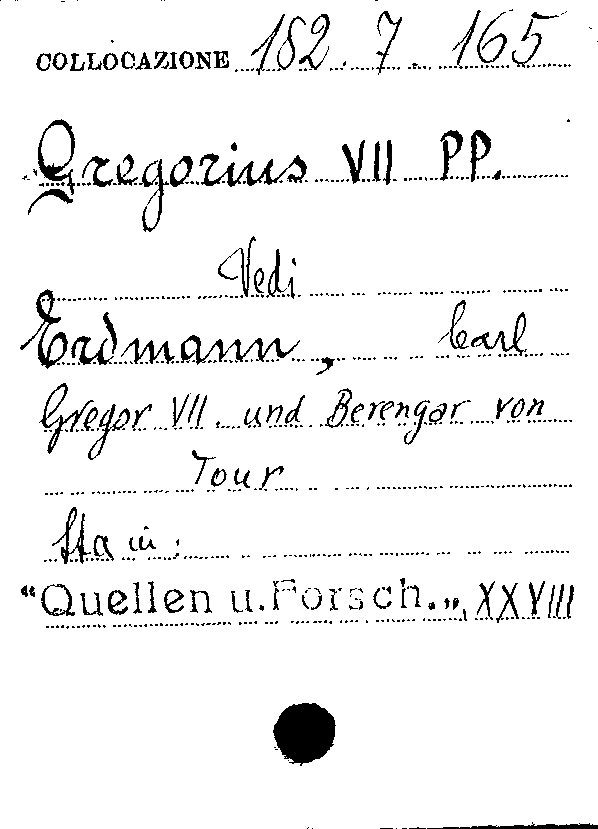 COLLOCAZIONE 182.7.165
Gregorius VII PP.
Vedi
Erdmann, Carl
Gregor VII. und Berengar von
Tour
Sta in:
"Quellen u.Forsch.", XXVIII